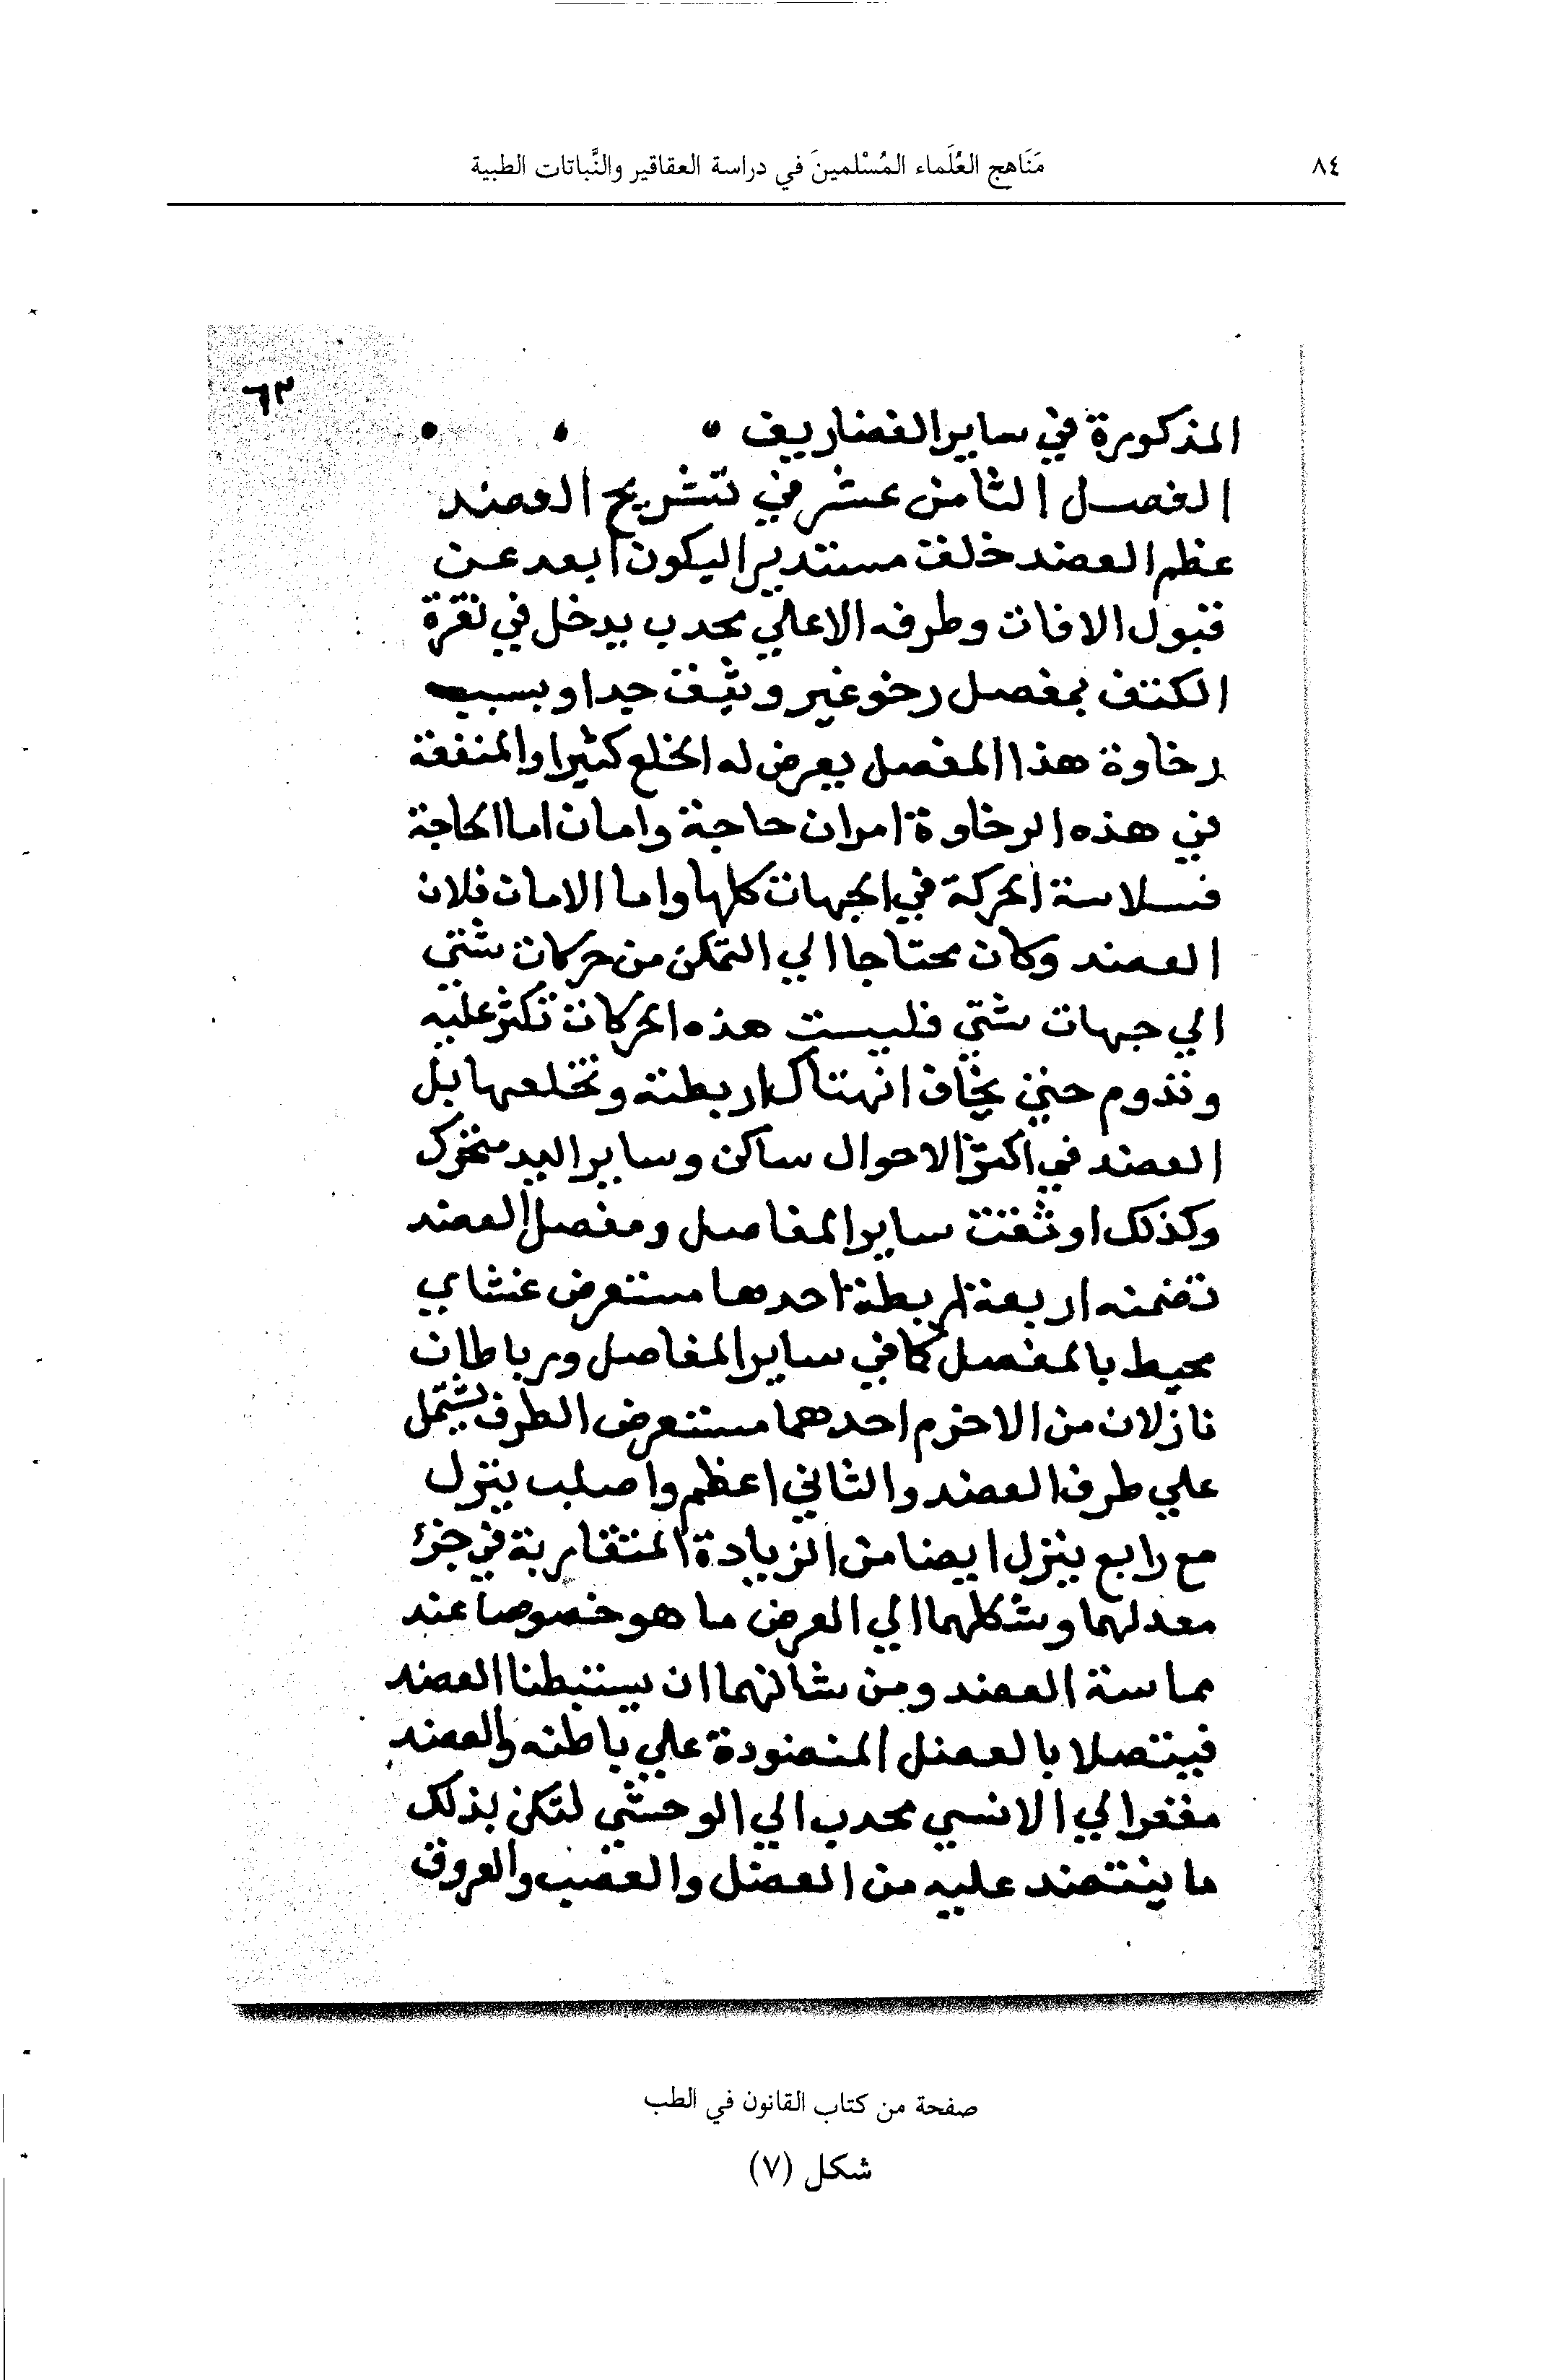 ٨٤
مَنَاهج العُلَماء المُسْلمينَ في دراسة العقاقير والنَّباتات الطبية
٦٣
المذكورة في ساير الغضاريف
الفصل الثامن عشر في تشريح العضد
عظم العضد خلق مستديرا ليكون ابعد عن
قبول الافات وطرفه الاعلي محدب يدخل في نقرة
الكتف بمفصل رخو غير وثيق جدا وبسبب
رخاوة هذا المفصل يعرض له الخلع كثيرا والمنفعة
في هذه الرخاوة امران حاجة وامان اما الحاجة
فسلاسة الحركة في الجهات كلها واما الامان فلان
العضد وكان محتاجا الي التمكن من حركات شتي
الي جهات شتي فليست هذه الحركات تكثر عليه
وتدوم حتي يخاف انهتاك اربطته وتخلعها بل
العضد في اكثر الاحوال ساكن وساير اليد متحرك
وكذلك اوثقت ساير المفاصل ومفصل العضد
تضمنه اربعة اربطة احدها مستعرض غشاي
محيط بالمفصل كما في ساير المفاصل ورباطان
نازلان من الاخرم احدهما مستعرض الطرف يشتمل
علي طرف العضد والثاني اعظم واصلب ينزل
مع رابع ينزل ايضا من الزيادة المنقاربة في جزئ
معد لهما وشكلهما الي العرض ما هو خصوصا عند
مماسة العضد ومن شانهما ان يستبطنا العضد
فيتصلا بالعضل المنضودة علي باطنه والعضد
مقعر الي الانسي محدب الي الوحشي لتكن بذلك
ما ينتضد عليه من العضل والعصب والعروق
صفحة من كتاب القانون في الطب
شكل (٧)